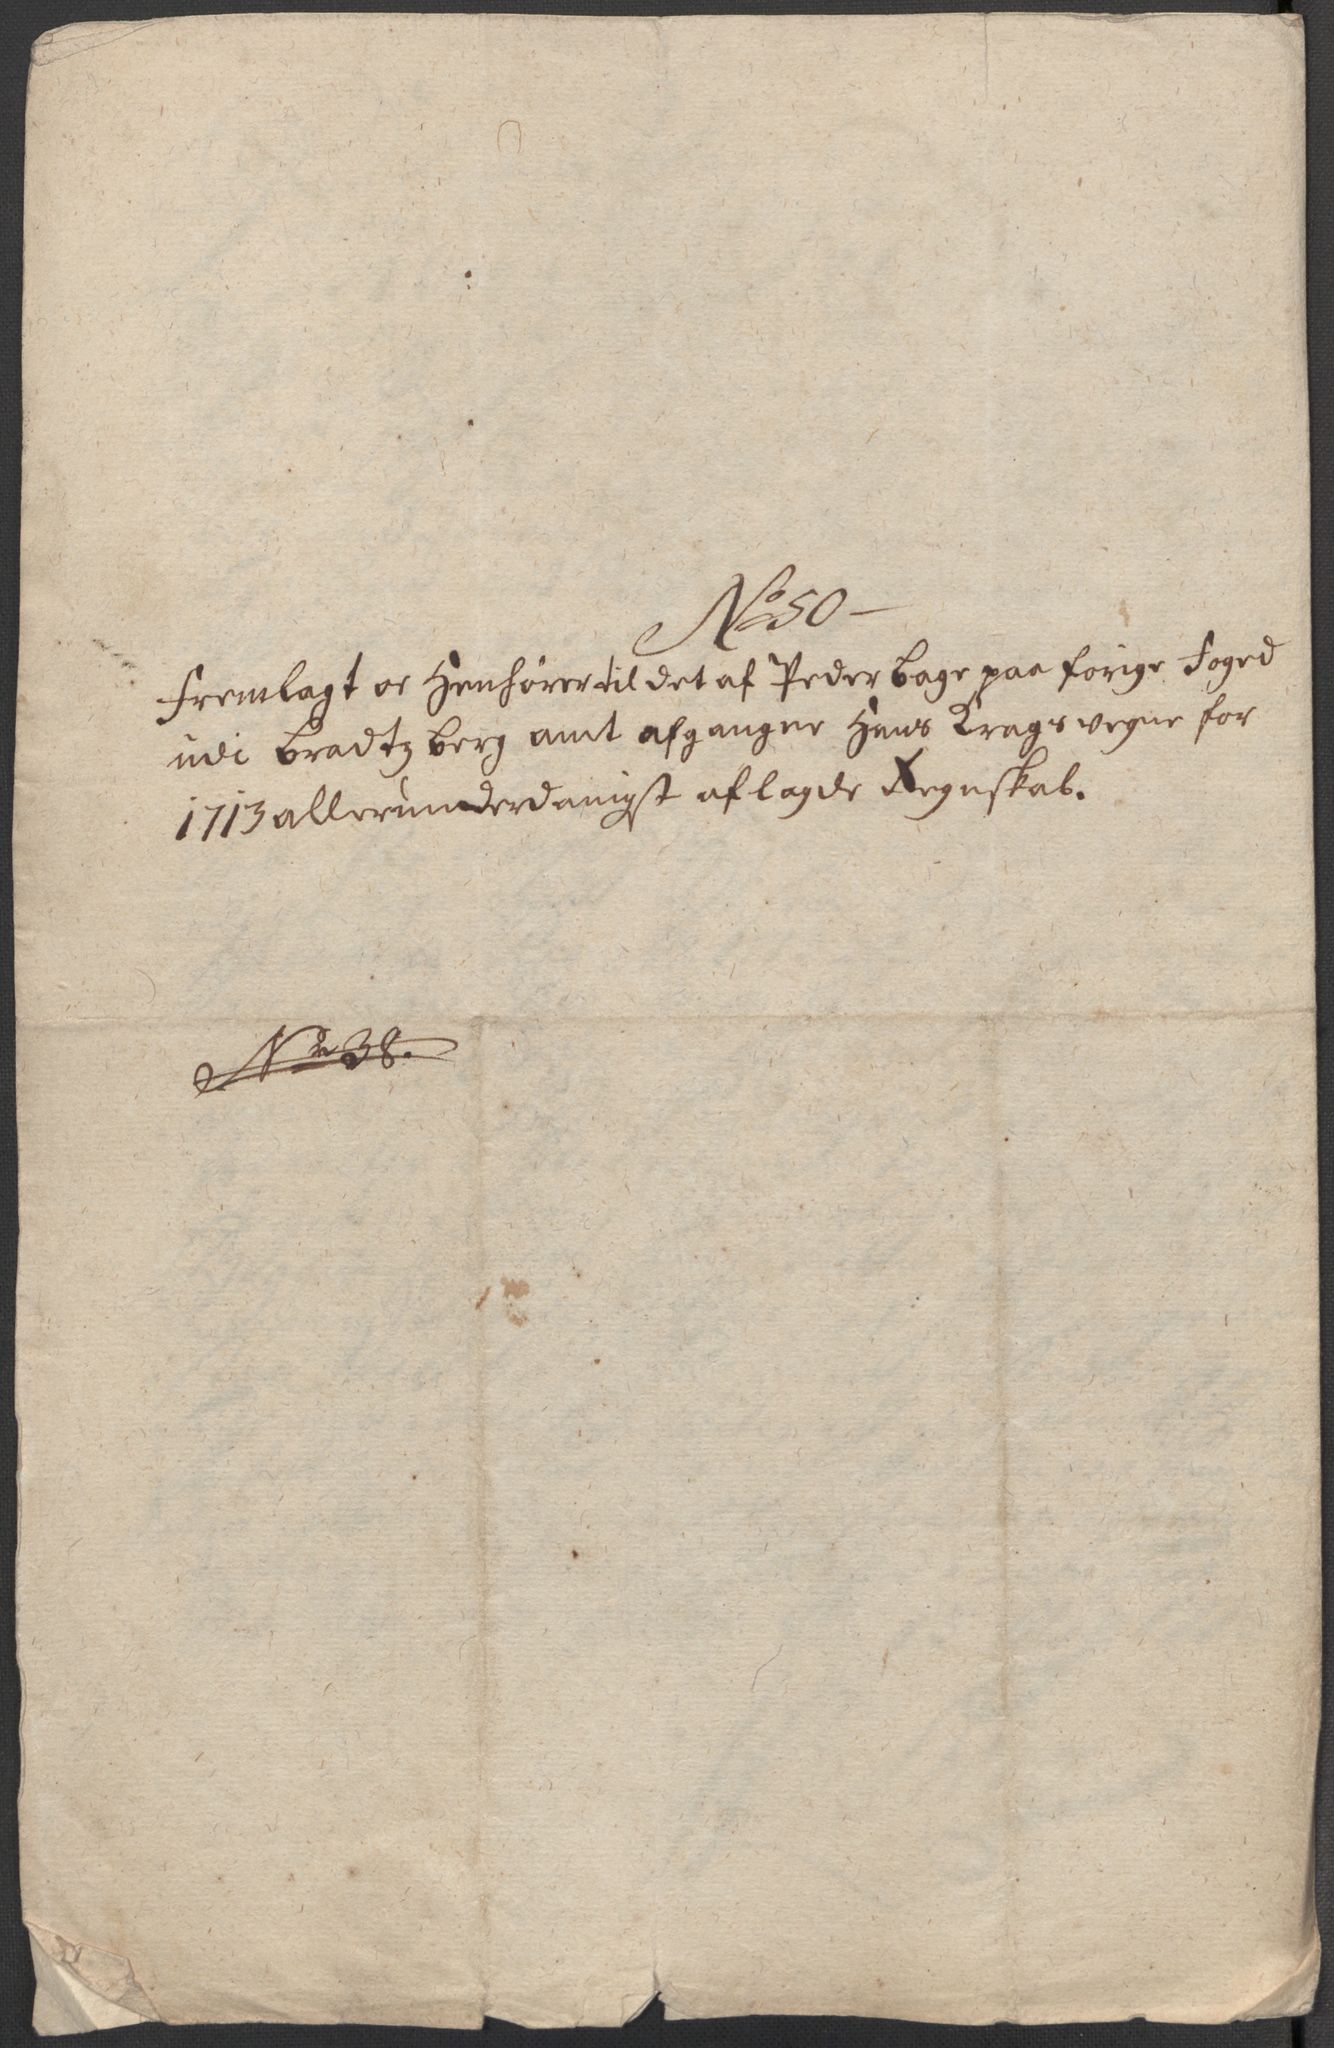 No 50 —
Fremlagt oc Henhører til det af Peder Bage paa forige Foged
udi Bradtzberg amt afgangne Hans Krags vegne for
1713 allerunderdanigst aflagde Regnskab.
No 38.